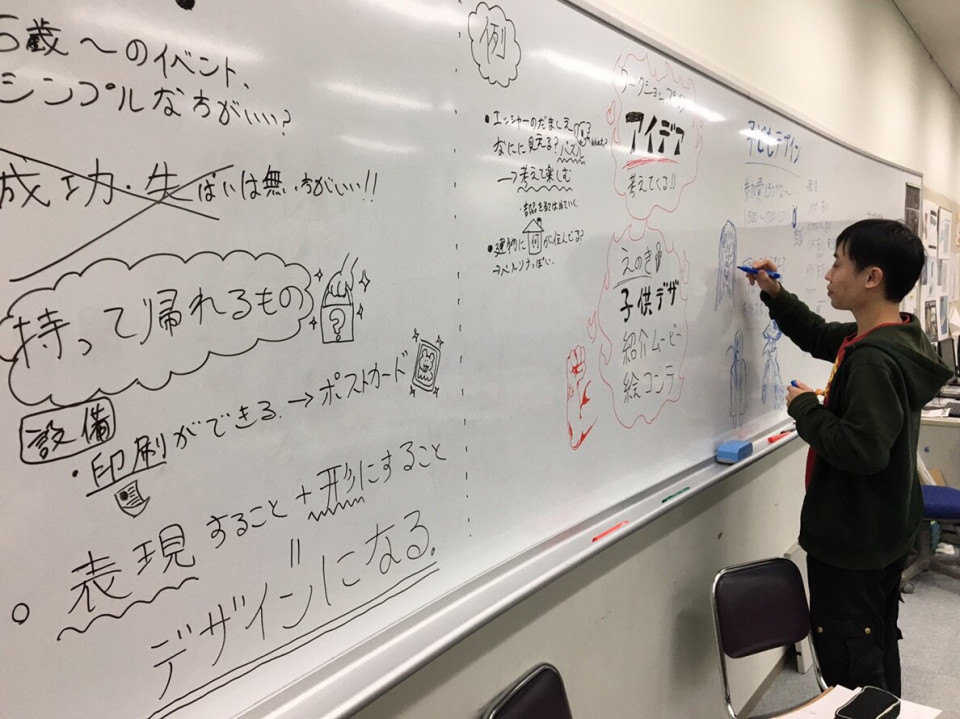 5歳〜のイベント、
シンプルな方がいい?
成功・失ぱいは無い方がいい!!
持って帰れるもの
?
設備
・印刷ができる。→ポストカード
○表現すること+形にすること
||
デザインになる。
例
・エッシャーのだましえ
なにに見える?パズル
→考えて楽しむ
・建物に何が住んでる?
ワークショップの
アイデア
考えてくる!!
えのき
子供デザ
紹介ムービー
絵コンテ
子どもデザイン